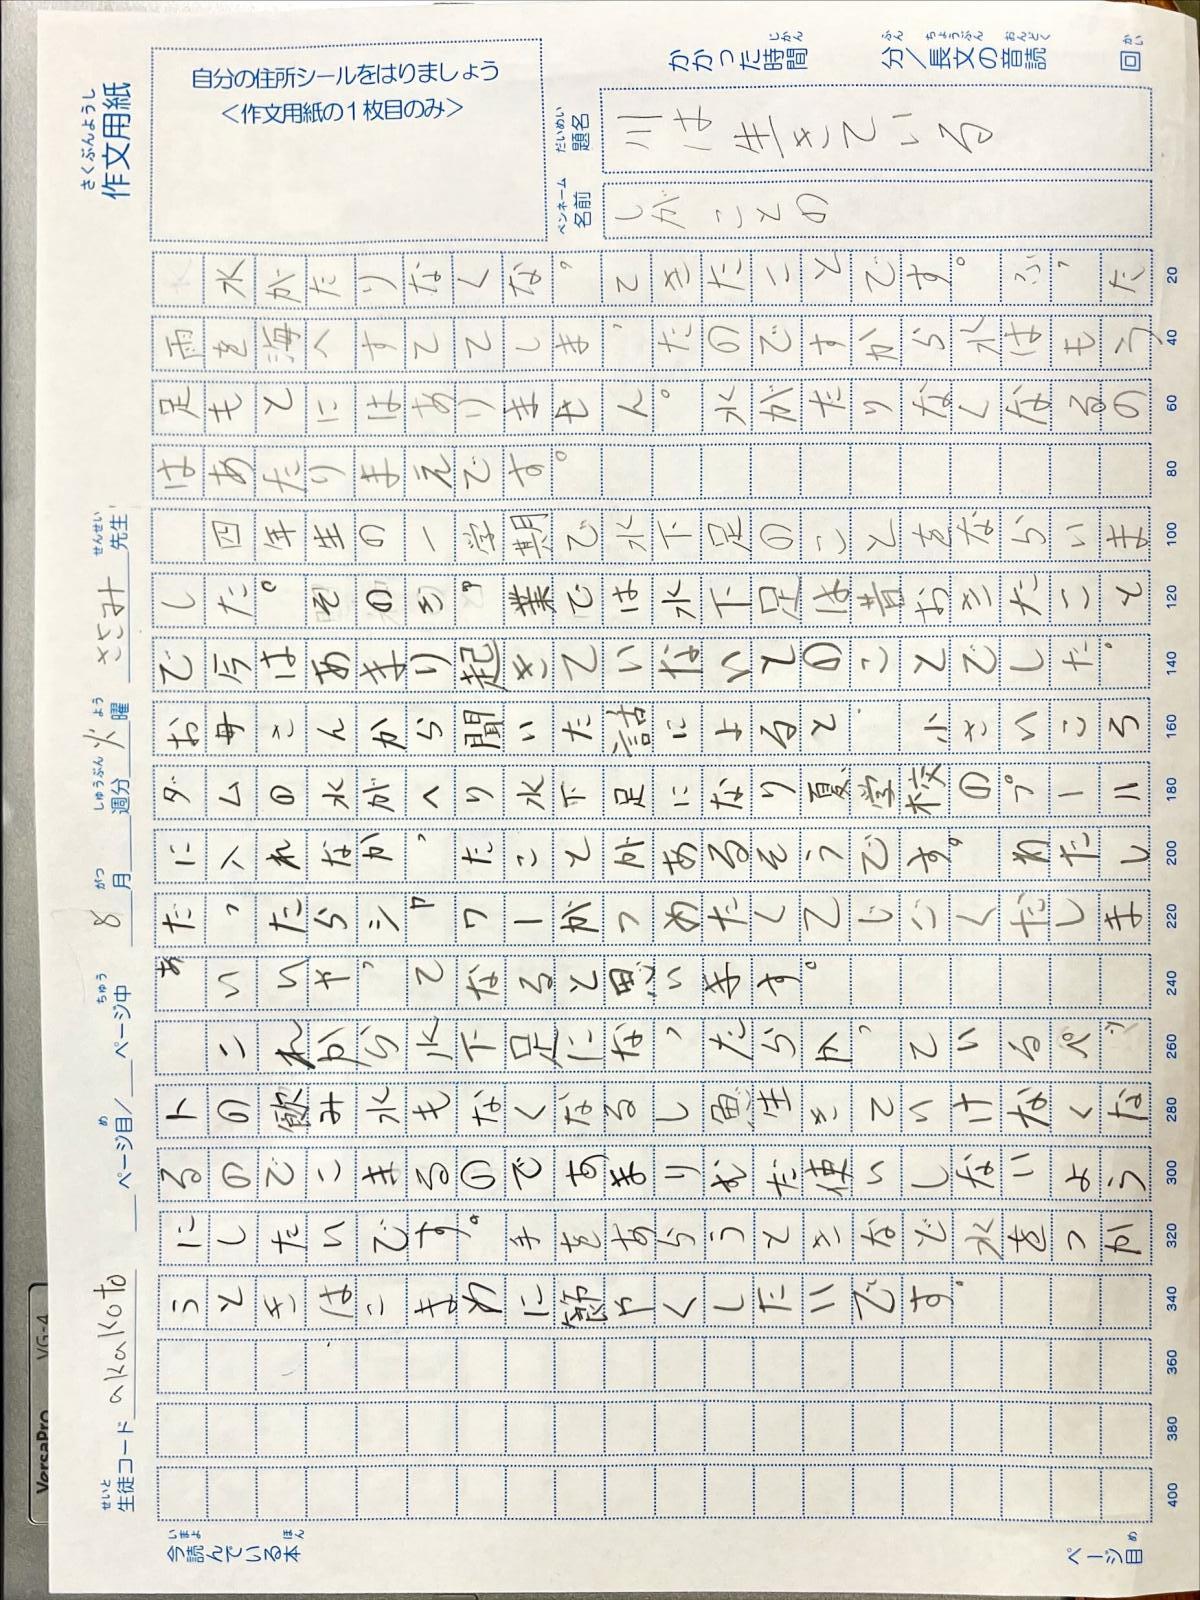 さくぶんようし
作文用紙
自分の住所シールをはりましょう
＜作文用紙の１枚目のみ＞
かかった時間 じかん
分／長文の音読 ふん ちょうぶん おんどく
回 かい
題名 だいめい 川は生きている
名前 ペンネーム しがことの
生徒コード せいと akakoto
ページ目／ページ中 め ちゅう
8月 がつ
週分 しゅうぶん 火曜 よう
ささみ先生 せんせい
水がたりなくなってきたことです。ふった
雨を海へすててしまったのですから水はもう
足もとにはありません。水がたりなくなるの
はあたりまえです。
四年生の一学期で水下足のことをならいま
した。その業では水下足は昔おきたこと
で今はあまり起きていないとのことでした。
お母さんから聞いた話によると、小さいころ
ダムの水がへり水下足になり夏学校のプール
に入れなかったことがあるそうです。わたし
だったらシャワーがつめたくてじごくだしま
あいいやってなると思います。
これから水下足になったらかっているペッ
トの飲み水もなくなるし魚生きていけなくな
るのでこまるのであまりむだ使いしないよう
にしたいです。手をあらうときなど水をつか
うときはこまめに節やくしたいです。
20
40
60
80
100
120
140
160
180
200
220
240
260
280
300
320
340
360
380
400
今読んでいる本 いまよ ほん
ページ目 め
VersaPro VG-4